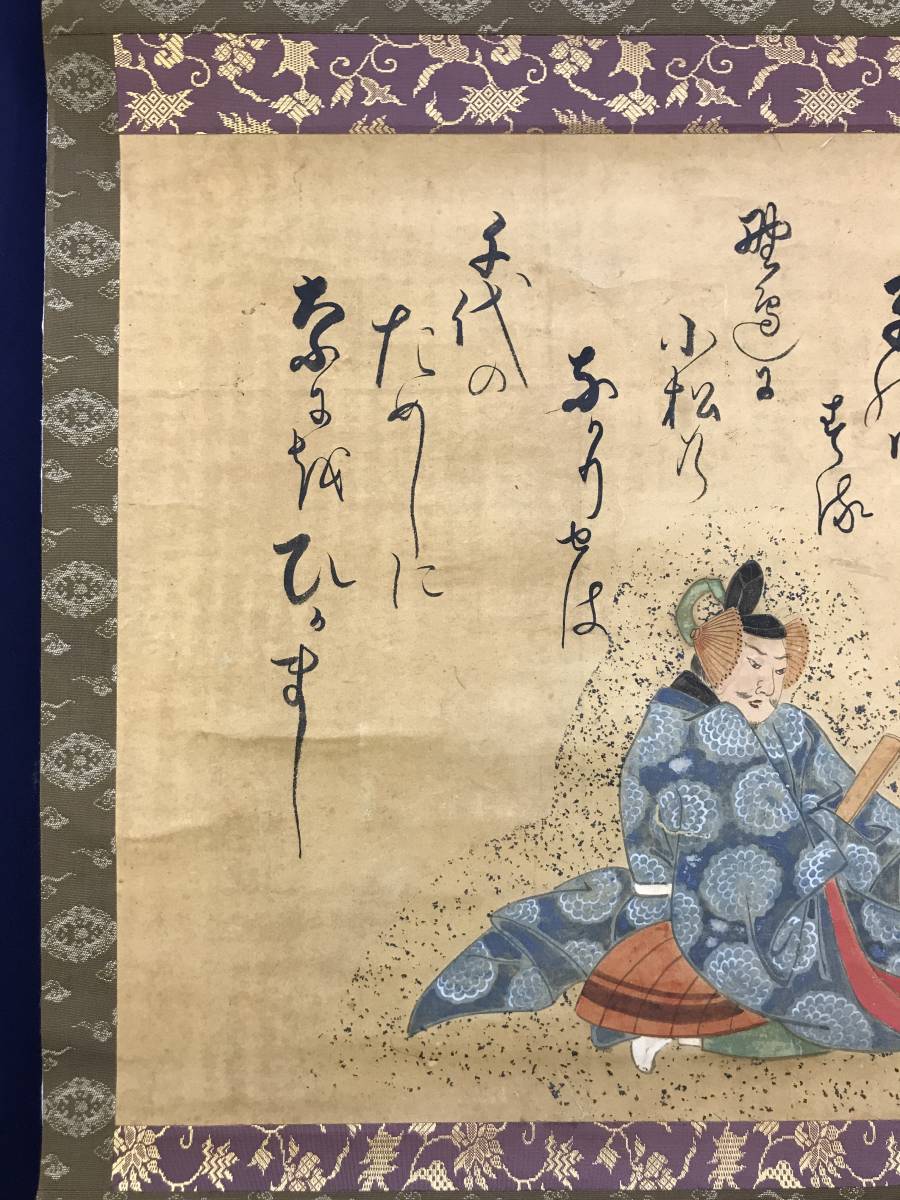 する
野邊に
小松の
なかりせは
千代の
ためしに
なにをひかまし